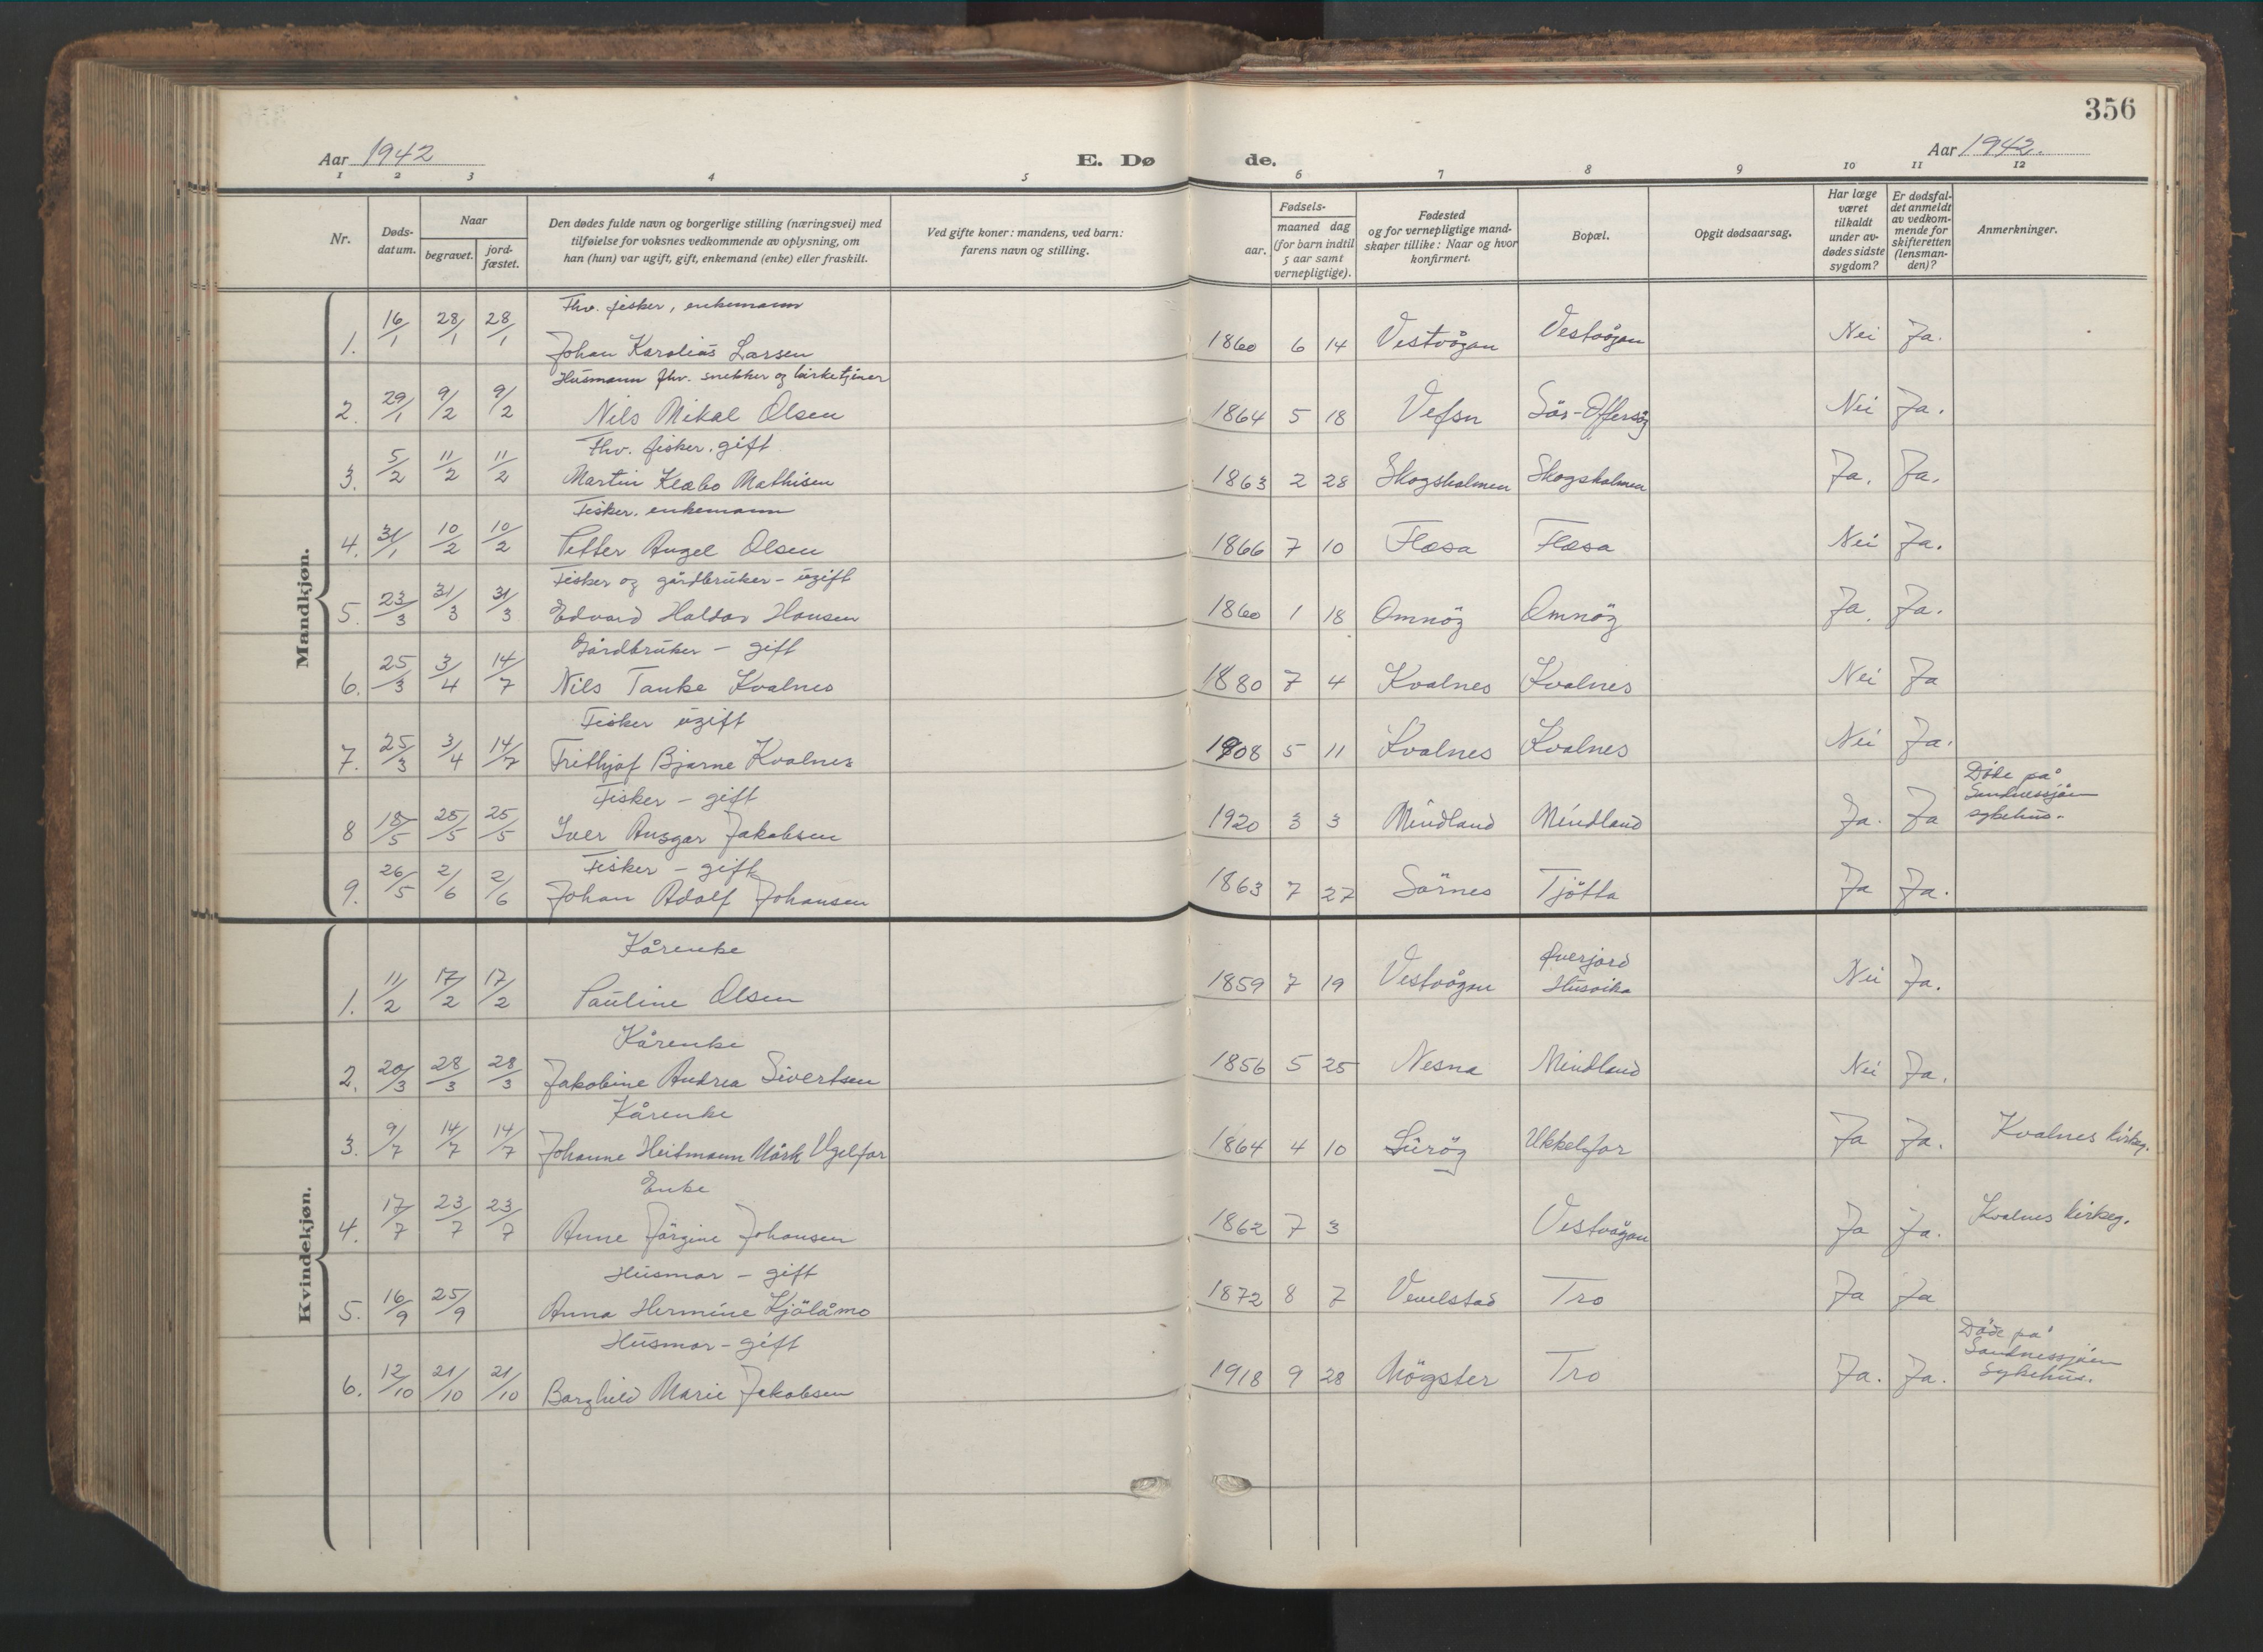 356
Aar 1942
E. Døde.
Aar 1942.
1 2 3 4 5 6 7 8 9 10 11 12
Nr.
Døds-
datum.
Naar
begravet.
jord-
fæstet.
Den dødes fulde navn og borgerlige stilling (næringsvei) med
tilføielse for voksnes vedkommende av oplysning, om
han (hun) var ugift, gift, enkemand (enke) eller fraskilt.
Ved gifte koner: mandens, ved barn:
farens navn og stilling.
Fødsels-
aar.
maaned dag
(for barn indtil
5 aar samt
vernepligtige).
Fødested
og for vernepligtige mand-
skaper tillike: Naar og hvor
konfirmert.
Bopæl.
Opgit dødsaarsag.
Har læge
været
tilkaldt
under av-
dødes sidste
sygdom?
Er dødsfal-
det anmeldt
av vedkom-
mende for
skifteretten
(lensman-
den)?
Anmerkninger.
Mandkjøn.
Fhv. fisker, enkemann
1. 16/1 28/1 28/1 Johan Karolius Larsen 1860 6 14 Vestvågan Vestvågan Nei Ja.
Husmann fhv. snekker og kirketjener
2. 29/1 9/2 9/2 Nils Mikal Olsen 1864 5 18 Vefsn Sör-Offersöy Nei Ja.
Fhv. fisker, gift
3. 5/2 11/2 11/2 Martin Klæbo Mathisen 1863 2 28 Skogsholmen Skogsholmen Ja. Ja.
Fisker, enkemann
4. 31/1 10/2 10/2 Petter Angel Olsen 1866 7 10 Flæsa Flæsa Nei Ja.
Fisker og gårdbruker - ugift
5. 23/3 31/3 31/3 Edvard Haldor Hansen 1860 1 18 Omnöy Omnöy Ja. Ja.
Gårdbruker - gift
6. 25/3 3/4 14/7 Nils Tanke Kvalnes 1880 7 4 Kvalnes Kvalnes Nei Ja
Fisker ugift
7. 25/3 3/4 14/7 Frithjof Bjarne Kvalnes 1908 5 11 Kvalnes Kvalnes Nei Ja.
Fisker - gift
8 18/5 25/5 25/5 Iver Ansgar Jakobsen 1920 3 3 Mindland Mindland Ja. Ja
Døde på
Sandnessjöen
sykehus.
Fisker - gift
9. 26/5 2/6 2/6 Johan Adolf Johansen 1863 7 27 Sörnes Tjötta Ja Ja.
Kvindekjøn.
Kårenke
1. 11/2 17/2 17/2 Pauline Olsen 1859 7 19 Vestvågan Øverjord
Husvika Nei Ja.
Kårenke
2. 20/3 28/3 28/3 Jakobine Andrea Sivertsen 1856 5 25 Nesna Mindland Nei Ja.
Kårenke
3. 9/7 14/7 14/7 Johanne Heitmann Mörk Ugelfor 1864 4 10 Luröy Ukkelfor Ja Ja. Kvalnes kirkeg.
Enke
4. 17/7 23/7 23/7 Anne Jörgine Johansen 1862 7 3 Vestvågan Ja Ja. Kvalnes kirkeg.
Husmor - gift
5. 16/9 25/9 Anna Hermine Kjölåmo 1872 8 7 Vevelstad Tro Ja Ja
Husmor - gift
6. 12/10 21/10 21/10 Borghild Marie Jakobsen 1918 9 28 Mögster Tro Ja. Ja.
Døde på
Sandnessjöen
Sykehus.